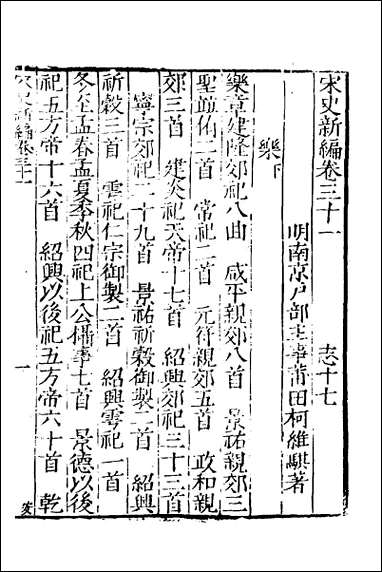 宋史新編卷三十一　志十七
明南京戶部主事莆田柯維騏著
樂下
樂章建隆郊祀八曲　咸平親郊八首　景祐親郊三
聖竝侑二首　常祀二首　元符親郊五首　政和親
郊三首　建炎祀天帝十七首　紹興郊祀三十三首
寧宗郊祀二十九首　景祐祈穀御製二首　紹興
祈穀三首　雩祀仁宗御製二首　紹興雩祀一首
冬至孟春孟夏季秋四祀上公攝事七首　景德以後
祀五方帝十六首　紹興以後祀五方帝六十首　乾
宋史新編卷三十一　一